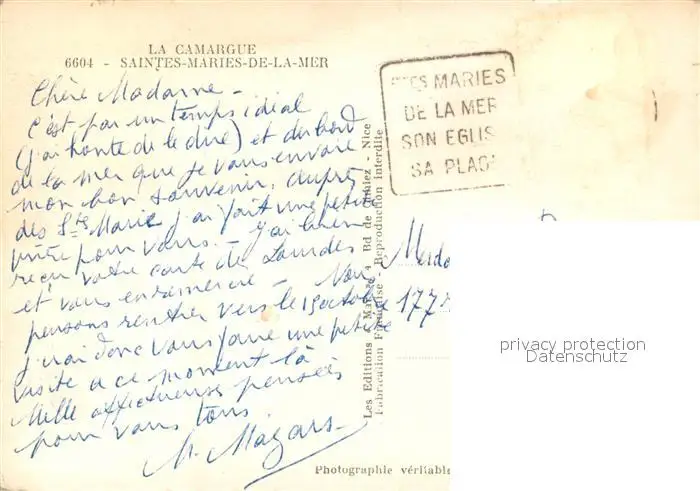 LA CAMARGUE
6604 - SAINTES-MARIES-DE-LA-MER
Chère Madame -
C'est par un temps idéal
(j'ai honte de le dire) et du bord
de la mer que je vous envoie
mon bon souvenir. Auprès
des Stes Maries j'ai fait une petite
prière pour vous. - J'ai bien
reçu votre carte de Lourdes
et vous en remercie - Nous
pensons rentrer vers le 15 octobre
j'irai donc vous faire une petite
visite à ce moment là
Mille affectueuses pensées
pour vous tous
M. Mazars
STES MARIES
DE LA MER
SON EGLIS
SA PLAG
Les Editions Mar 4 Bd de - Nice
Fabrication Française - Reproduction interdite
177
Photographie véritable
privacy protection
Datenschutz